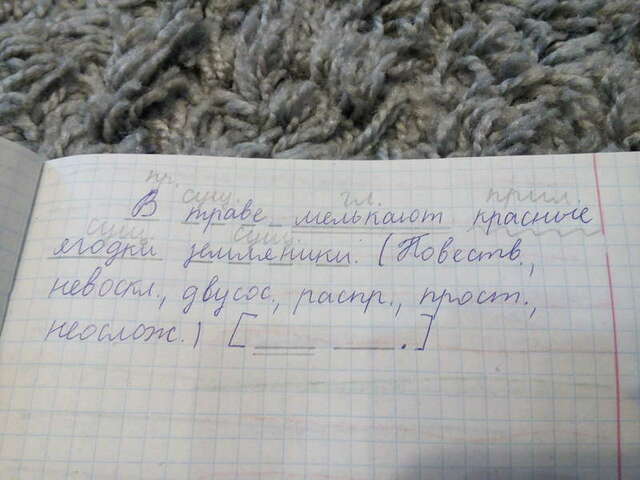 пр. сущ. гл. прил.
В траве мелькают красные
сущ. сущ.
ягодки земляники. (Повеств.,
невоскл., двусос., распр., прост.,
неослож.) [ . ]